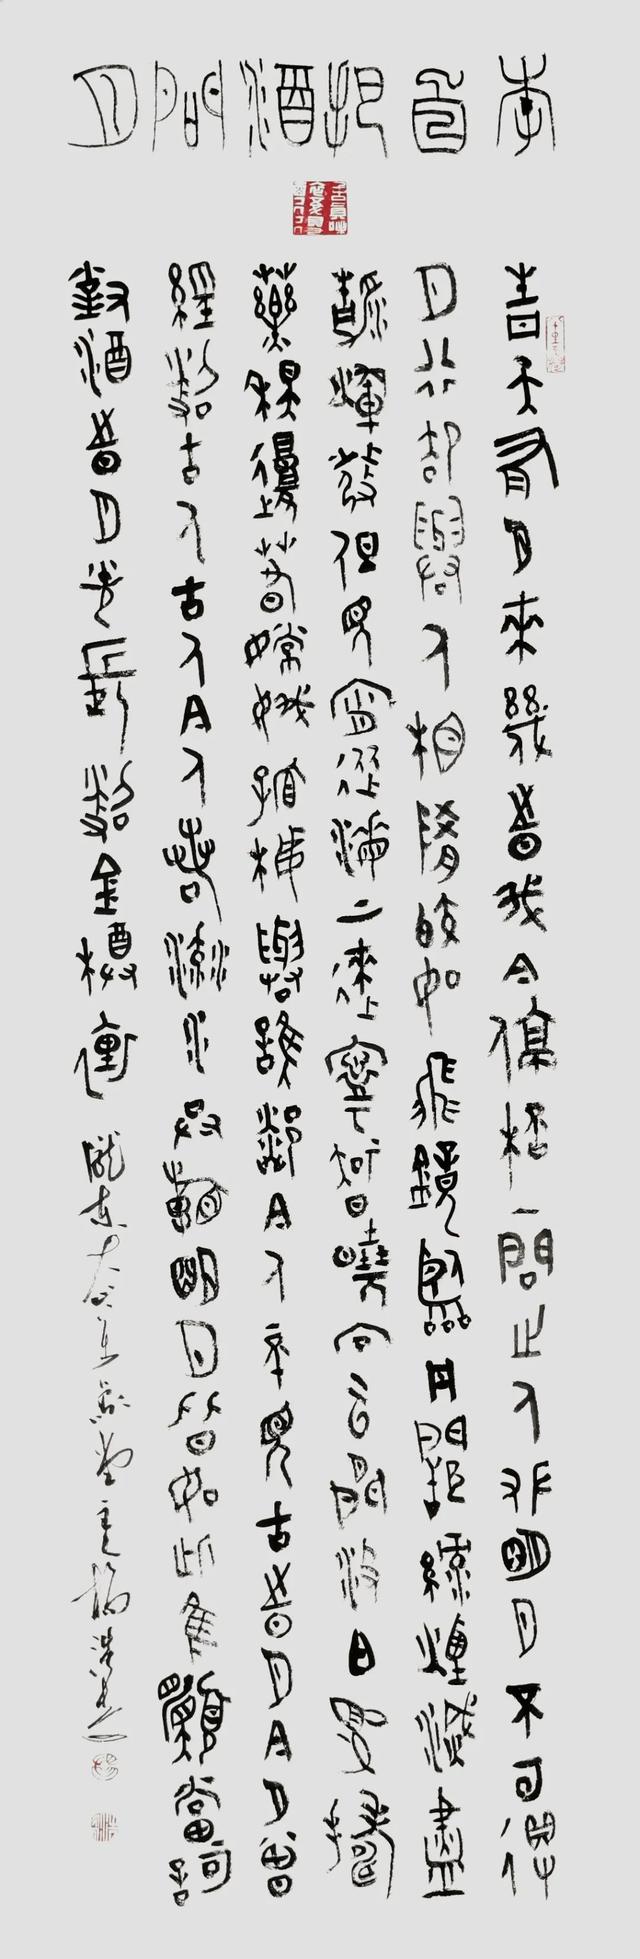 李白把酒問月
青天有月來幾時我今停杯一問之人攀明月不可得
月行卻與人相隨皎如飛鏡臨丹闕綠煙滅盡
清輝發但見宵從海上來寧知曉向雲間沒白兔搗
藥秋復春嫦娥孤棲與誰鄰今人不見古時月今月曾
經照古人古人今人若流水共看明月皆如此唯願當歌
對酒時月光長照金樽裏 隴東